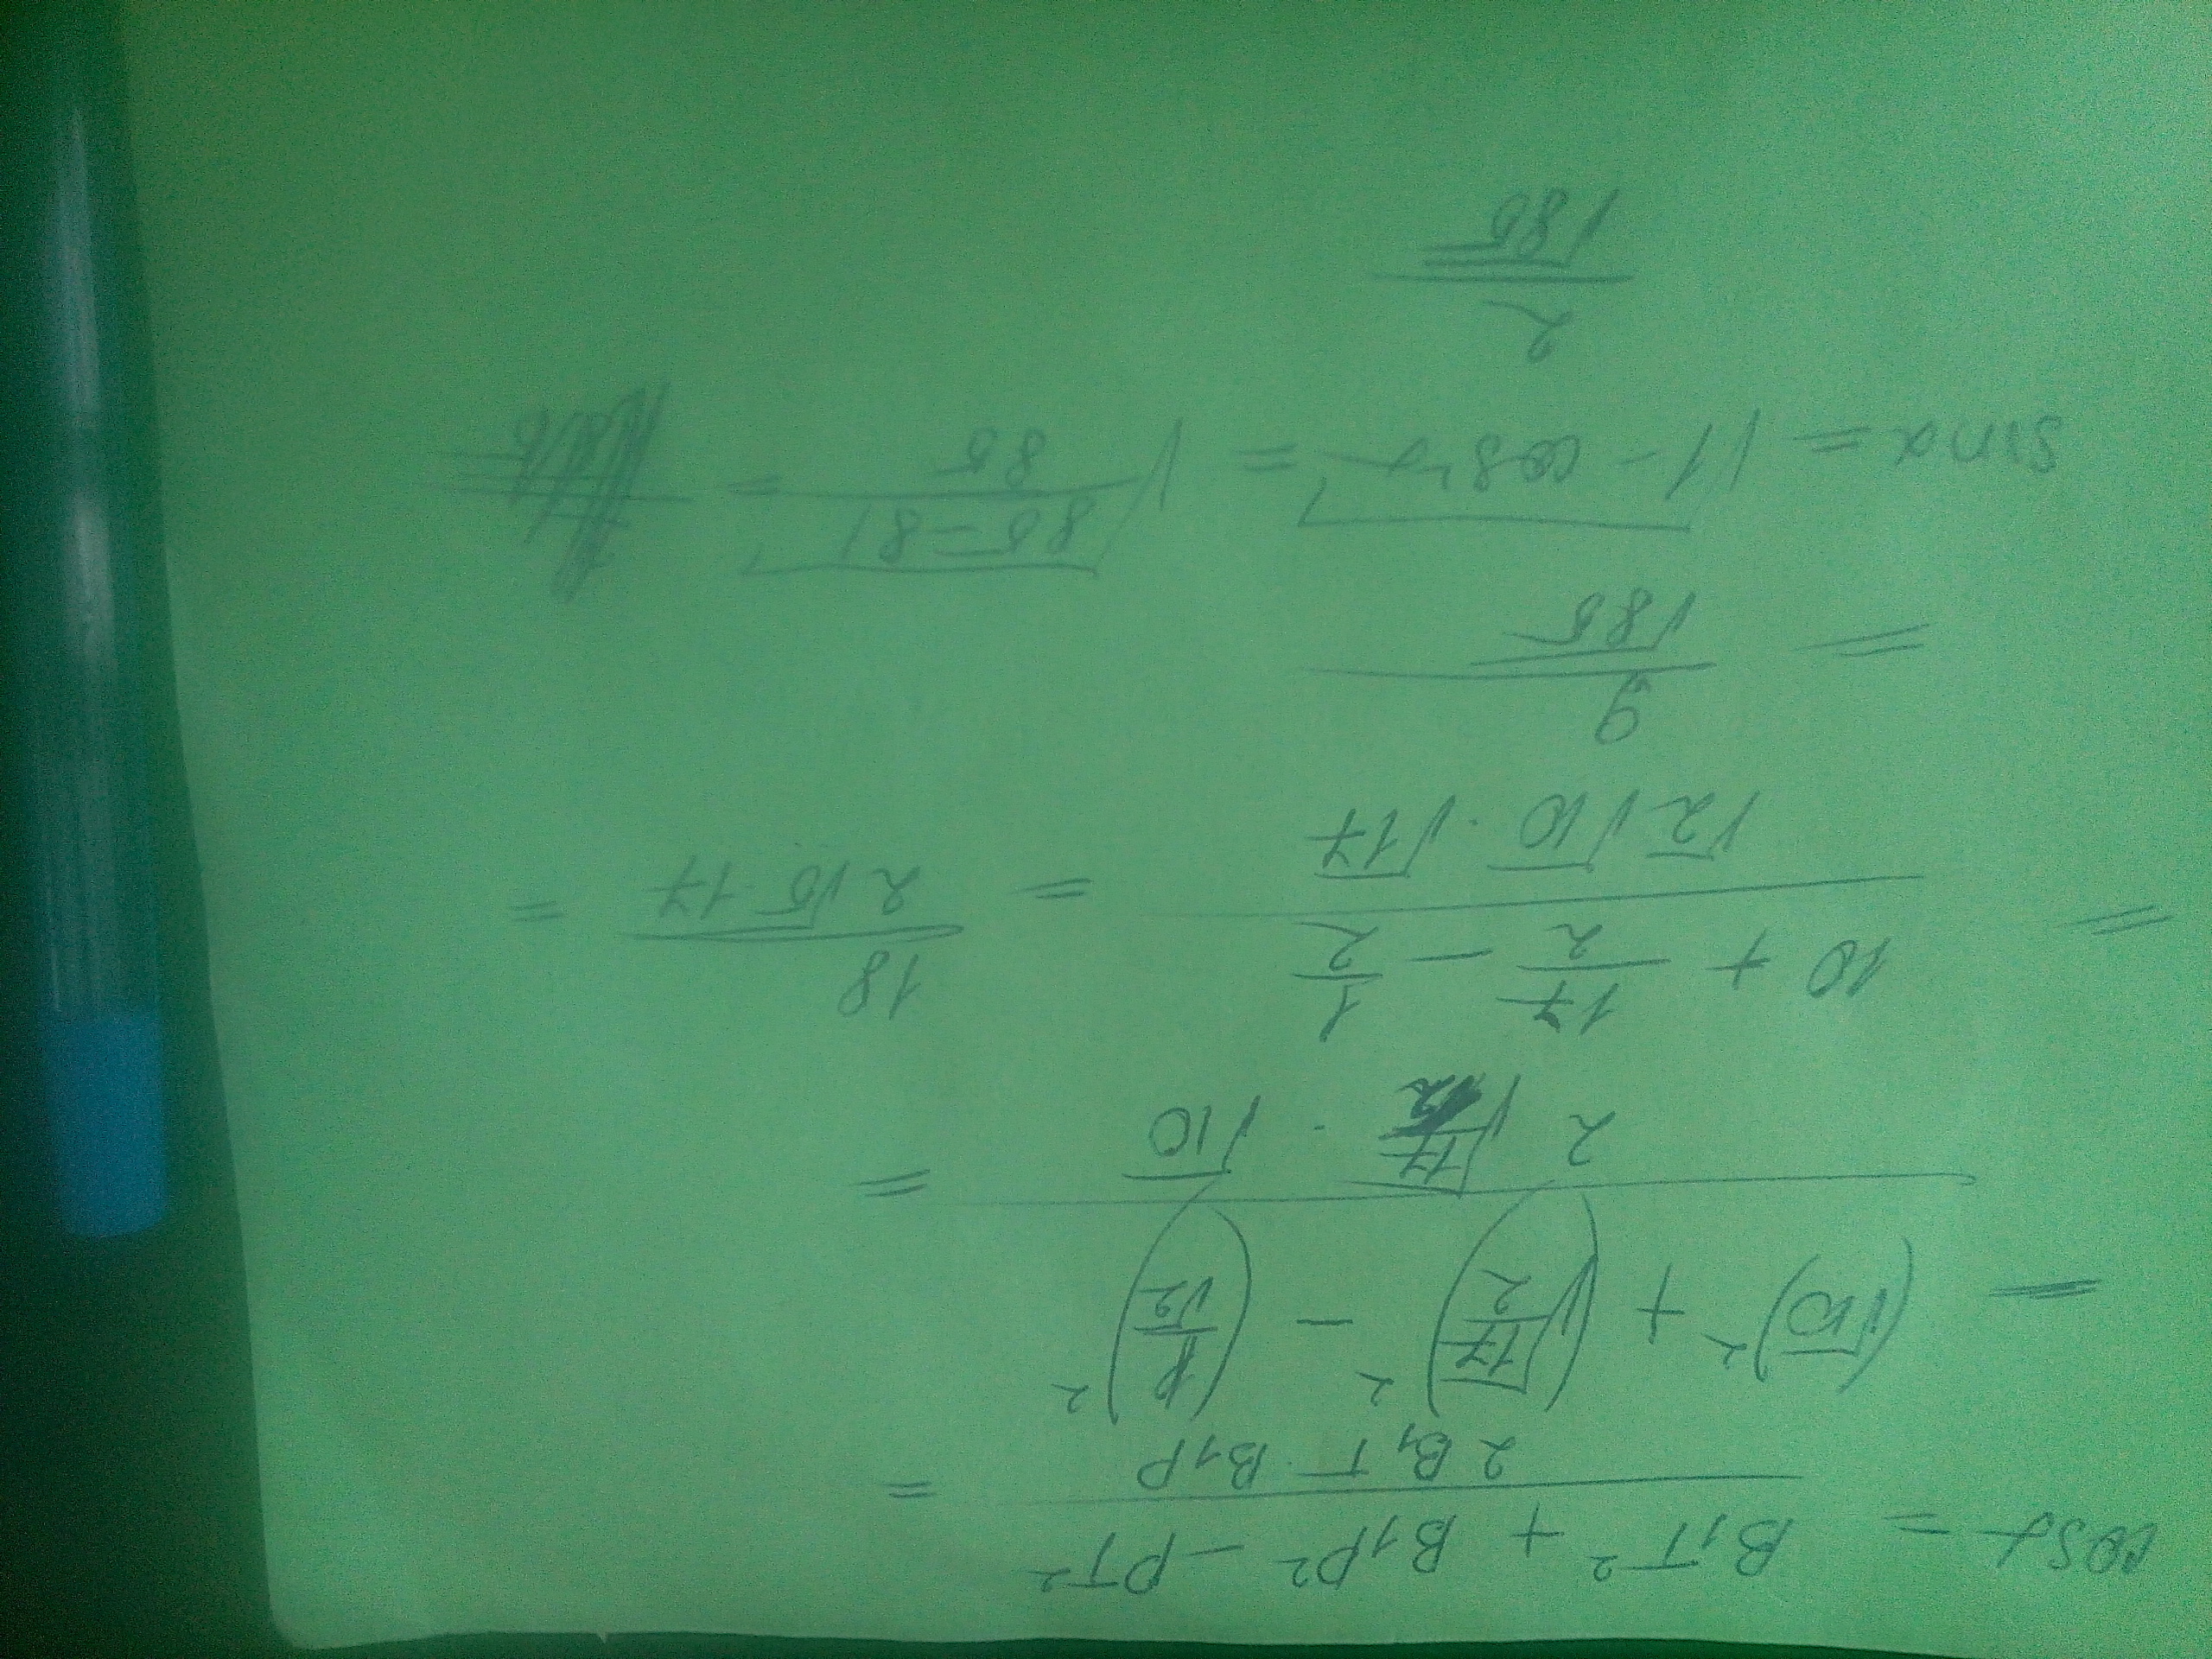 cosα = (B₁T² + B₁P² - PT²) / (2 B₁T · B₁P) =
= ((√10)² + (√(17/2))² - (1/√2)²) / (2 √(17/2) · √10) =
= (10 + 17/2 - 1/2) / (√2 √10 · √17) = 18 / (2√5·17) =
= 9 / √85
sinα = √(1 - cos²α) = √((85-81)/85) =
2 / √85